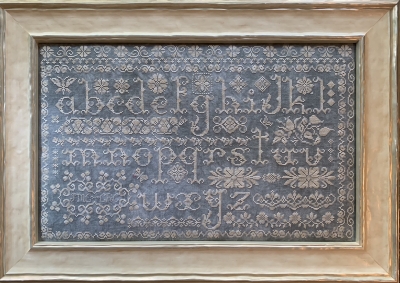 abcdefghijkl
mnopqrstuv
wxyz